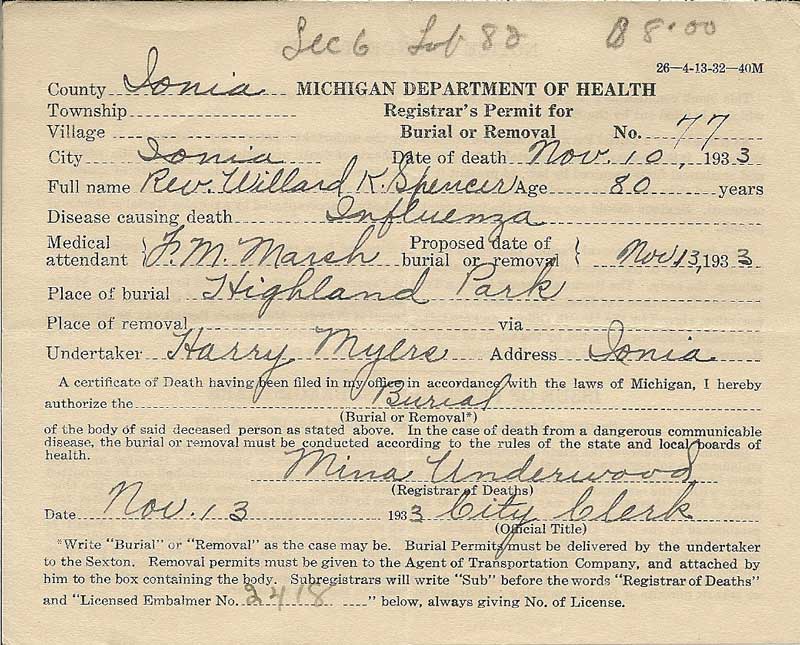 Sec 6 Lot 82 B 8.00
26—4-13-32—40M
County Ionia MICHIGAN DEPARTMENT OF HEALTH
Township Registrar's Permit for
Village Burial or Removal No. 77
City Ionia Date of death Nov. 10, 1933
Full name Rev. Willard K. Spencer Age 80 years
Disease causing death Influenza
Medical attendant F. M. Marsh Proposed date of burial or removal Nov 13, 1933
Place of burial Highland Park
Place of removal via
Undertaker Harry Myers Address Ionia
A certificate of Death having been filed in my office in accordance with the laws of Michigan, I hereby
authorize the Burial
(Burial or Removal*)
of the body of said deceased person as stated above. In the case of death from a dangerous communicable
disease, the burial or removal must be conducted according to the rules of the state and local boards of
health.
Mina Underwood
(Registrar of Deaths)
Date Nov. 13 1933 City Clerk
(Official Title)
*Write "Burial" or "Removal" as the case may be. Burial Permits must be delivered by the undertaker
to the Sexton. Removal permits must be given to the Agent of Transportation Company, and attached by
him to the box containing the body. Subregistrars will write "Sub" before the words "Registrar of Deaths"
and "Licensed Embalmer No. 2418 " below, always giving No. of License.